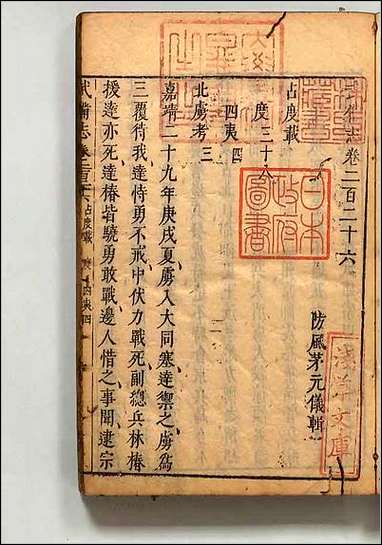 武備志卷二百二十六
防風茅元儀輯
占度載
度三十八
四夷四
北虜考三
嘉靖二十九年庚戌夏虜入大同塞達禦之虜爲
三覆待我達恃勇不戒中伏力戰死副總兵林椿
援達亦死達椿皆驍勇敢戰邊人惜之事聞逮宗
武備志卷二百二十六 占度載 度 四夷四
日本
政府
圖書
淺草文庫